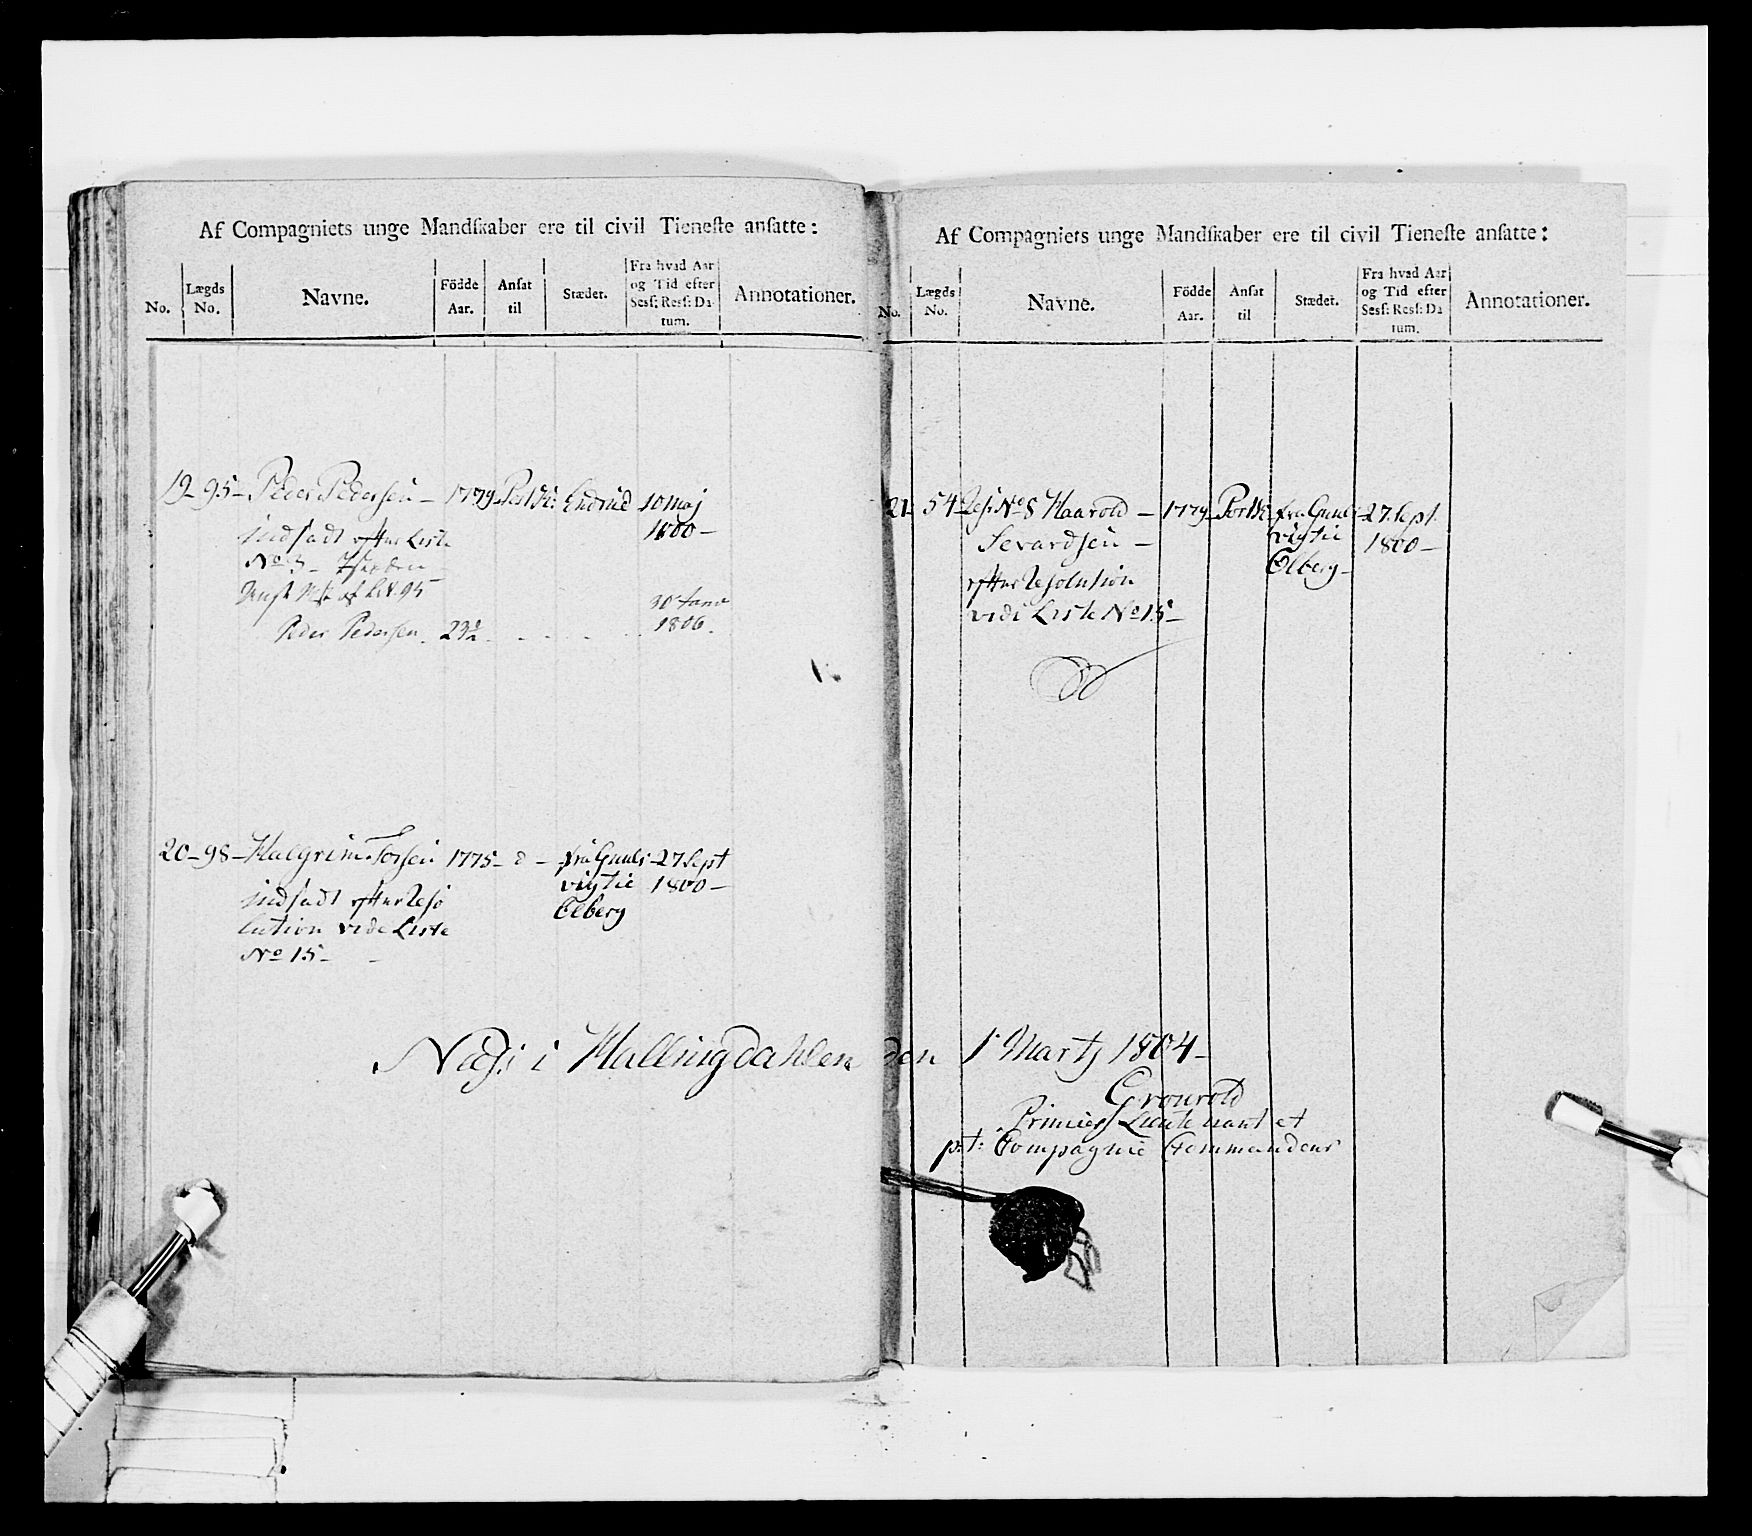 Af Compagniets unge Mandſkaber ere til civil Tieneſte anſatte:
No. Lægds No. Navne. Födde Aar. Anſat til Stæder. Fra hvad Aar og Tid efter Sesſ: Resſ: Datum. Annotationer.
19 - 95 - Peder Pedersen - 1779 - Endrud 10 Maj
indsadt efter Liste 1800 -
No 3 -
95
30 Janv
Peder Pedersen. 23½ . . . . . 1806.
20 - 98 - Halgrim Torsen 1775 - d - fra Guuls- 27 Sept
indsadt efter Reso vigtie 1800 -
lution vide Liste Elberg
No 15 -
Næss i Hallingdahlen
Af Compagniets unge Mandſkaber ere til civil Tieneſte anſatte:
No. Lægds No. Navne. Födde Aar. Anſat til Stæder. Fra hvad Aar og Tid efter Sesſ: Resſ: Datum. Annotationer.
21 - 54 - No 8 Haarold - 1779 - fra Guuls- 27 Sept.
Sevardsen - vigtie 1800 -
efter Resolution Elberg -
vide Liste No 15 -
den 1 Martz 1804 -
Grouvold
Premier Lieutenant et
p: t: Compagnie Commandeur